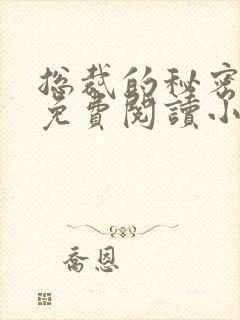 總裁的秘密
免費閱讀小
喬恩